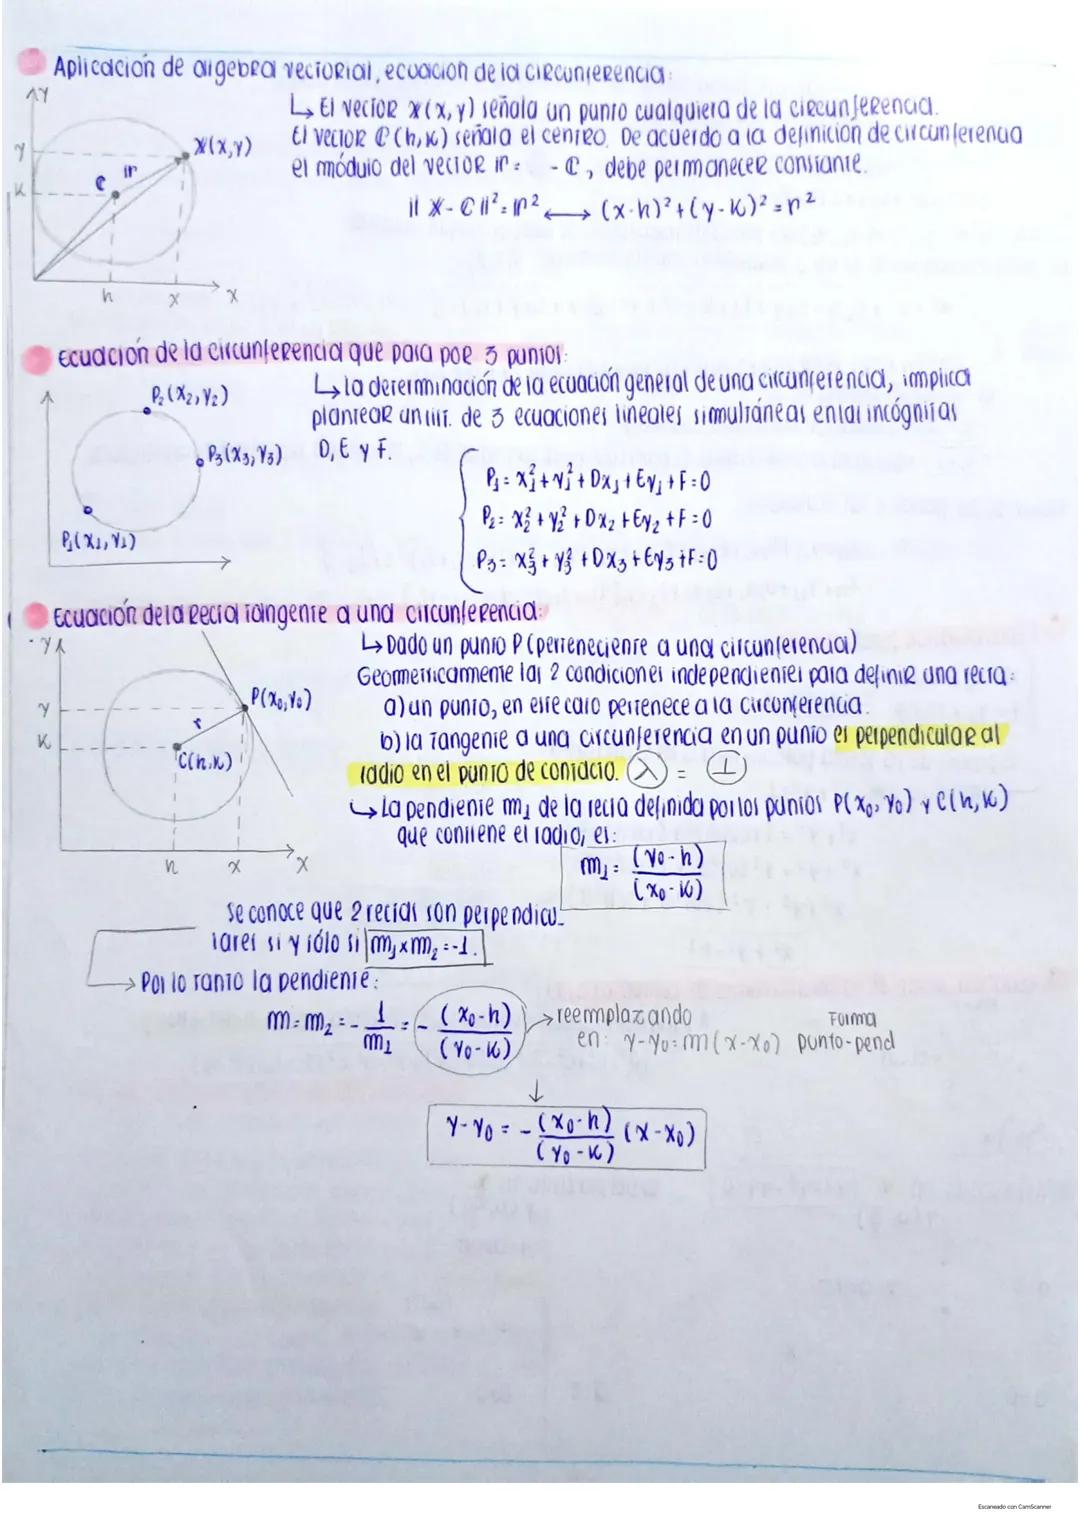 Aplicación de algebra vectorial, ecuación de la circunferencia:
↳ El vector X(x, y) señala un punto cualquiera de la circunferencia.
El vector C(h, k) señala el centro. De acuerdo a la definición de circunferencia
el módulo del vector r = - C, debe permanecer constante.
|| X - C ||² = r² ⟷ (x-h)² + (y-k)² = r²
Y
X(x,y)
y
r
C
K
h
x
X
Ecuación de la circunferencia que pasa por 3 puntos:
↳ la determinación de la ecuación general de una circunferencia, implica
plantear un sist. de 3 ecuaciones lineales simultáneas en las incógnitas
D, E y F.
P₂(X₂, Y₂)
P₃(X₃, Y₃)
P₁(X₁, Y₁)
P₁ = x₁² + y₁² + Dx₁ + Ey₁ + F = 0
P₂ = x₂² + y₂² + Dx₂ + Ey₂ + F = 0
P₃ = x₃² + y₃² + Dx₃ + Ey₃ + F = 0
Ecuación de la Recta Tangente a una circunferencia:
↳ Dado un punto P (perteneciente a una circunferencia)
Geometricamente las 2 condiciones independientes para definir una recta:
a) un punto, en este caso pertenece a la circunferencia.
b) la tangente a una circunferencia en un punto es perpendicular al
radio en el punto de contacto. ⅄ = ⊥
Y
P(x₀, y₀)
y
r
K
C(h,k)
h
x
X
↳ La pendiente m₁ de la recta definida por los puntos P(x₀, y₀) y C(h, k)
que contiene el radio, es:
m₁ = (y₀-h)/(x₀-k)
Se conoce que 2 rectas son perpendicu-
lares si y sólo si m₁ x m₂ = -1.
→ Por lo tanto la pendiente:
m = m₂ = - 1/m₁ = - (x₀-h)/(y₀-k) → reemplazando
en: y-y₀ = m(x-x₀) Forma punto-pend
↓
y-y₀ = - (x₀-h)/(y₀-k) (x-x₀)
Escaneado con CamScanner